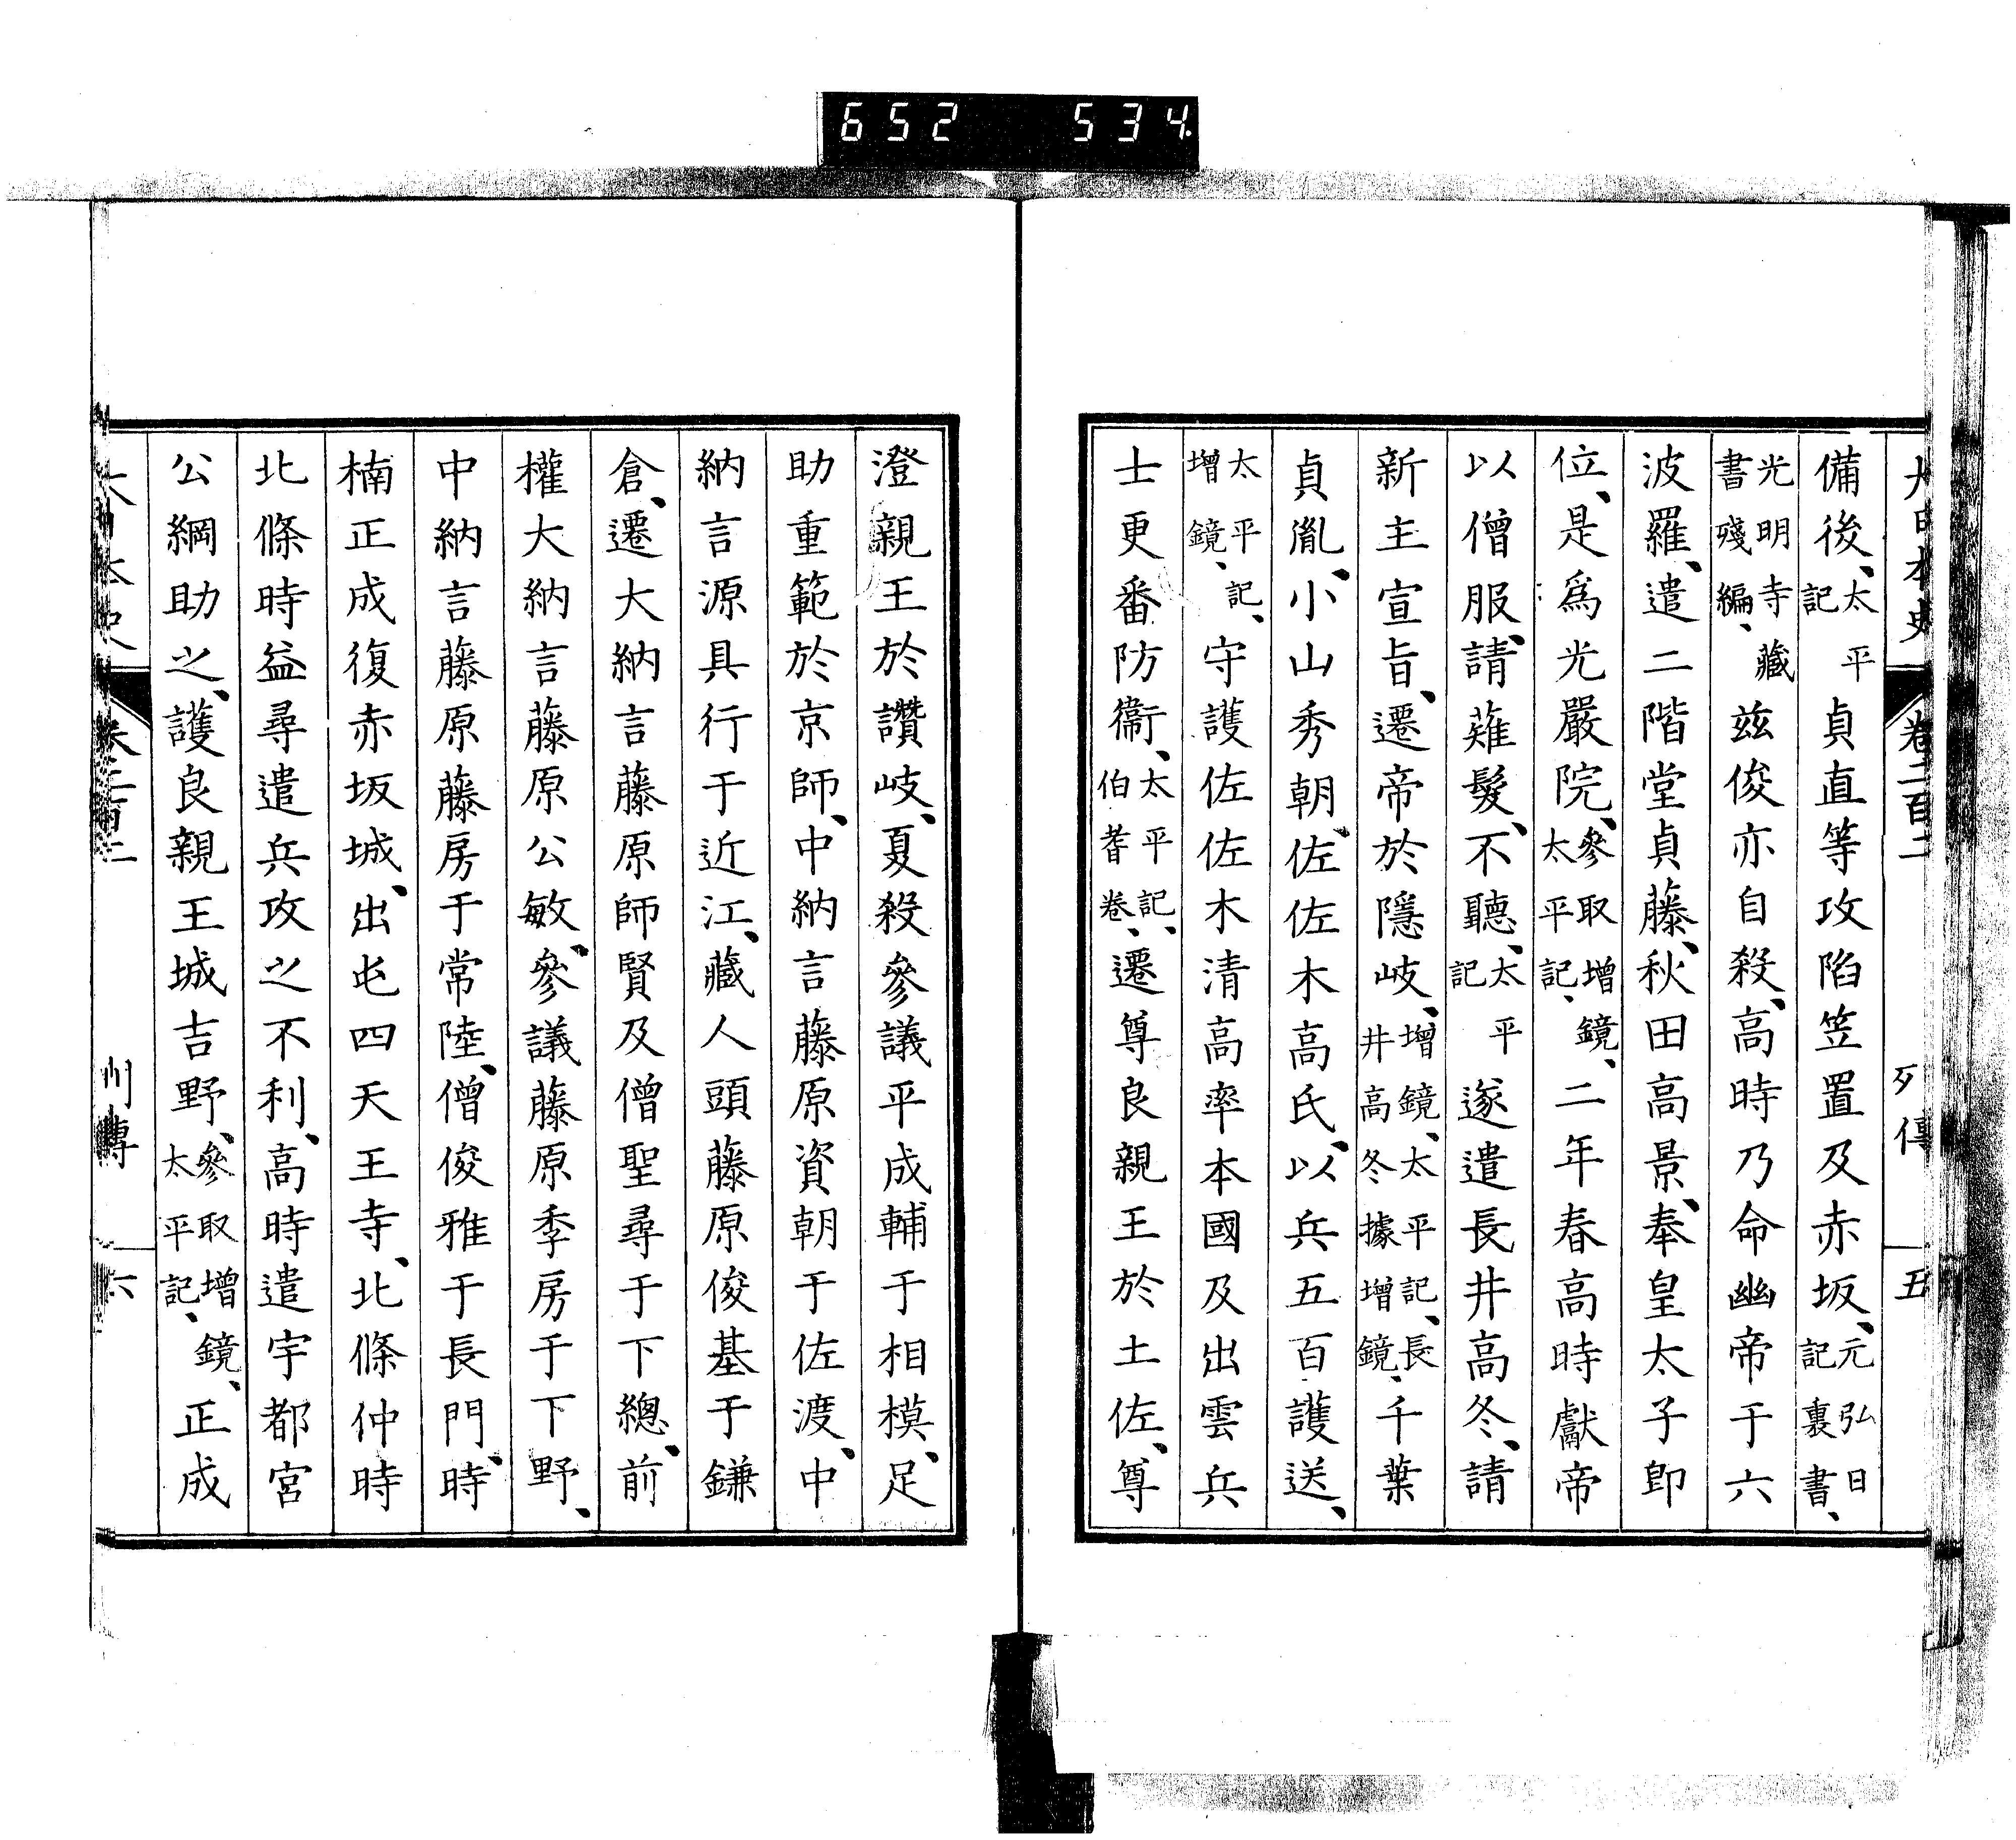 652 534
大日本史 卷二百二 列傳 五
備後、太平記貞直等攻陷笠置及赤坂、元弘日記裏書、
光明寺藏書殘編、兹俊亦自殺、高時乃命幽帝于六
波羅、遣二階堂貞藤、秋田高景、奉皇太子卽
位、是爲光嚴院、參取增鏡、太平記、二年春高時獻帝
以僧服、請薙髮、不聽、太平記遂遣長井高冬、請
新主宣旨、遷帝於隱岐、增鏡、太平記、長井高冬據增鏡、千葉
貞胤、小山秀朝、佐佐木高氏、以兵五百護送、
太平記、增鏡、守護佐佐木清高率本國及出雲兵
士更番防衞、太平記、伯耆卷、遷尊良親王於土佐、尊
澄親王於讚岐、夏殺參議平成輔于相模、足
助重範於京師、中納言藤原資朝于佐渡、中
納言源具行于近江、藏人頭藤原俊基于鎌
倉、遷大納言藤原師賢及僧聖尋于下總、前
權大納言藤原公敏、參議藤原季房于下野、
中納言藤原藤房于常陸、僧俊雅于長門、時
楠正成復赤坂城、出屯四天王寺、北條仲時
北條時益尋遣兵攻之不利、高時遣宇都宮
公綱助之、護良親王城吉野、參取增鏡、太平記、正成
大日本史 卷二百二 列傳 六